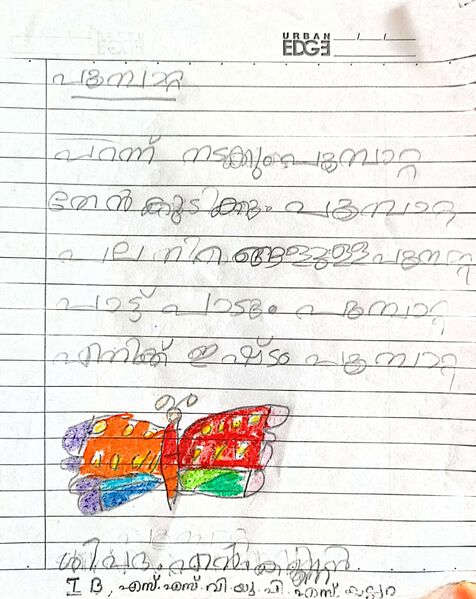 URBAN
EDGE
പൂമ്പാറ്റ
പറന്ന് നടക്കും പൂമ്പാറ്റ
തേൻ കുടിക്കും പൂമ്പാറ്റ
പല നിറങ്ങളുള്ള പൂമ്പാറ്റ
പാട്ട് പാടും പൂമ്പാറ്റ
എനിക്ക് ഇഷ്ടം പൂമ്പാറ്റ
I B, എസ്.എസ്.വി.യു.പി.എസ്